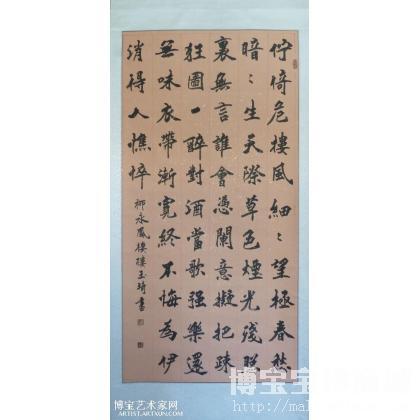 佇倚危樓風細〻望極春愁
暗〻生天際草色煙光殘照
裏無言誰會憑闌意擬把疎
狂圖一醉對酒當歌强樂還
無味衣帶漸寬終不悔為伊
消得人憔悴
柳永鳳棲 玉琦書
博宝艺术家网
博宝
http://mal